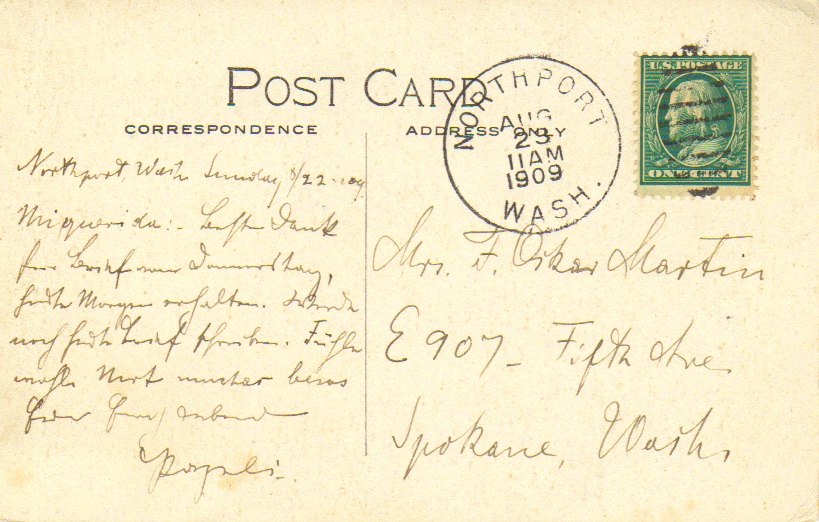 POST CARD
CORRESPONDENCE
ADDRESS ONLY
NORTHPORT
AUG
23
11AM
1909
WASH.
U.S. POSTAGE
ONE CENT
Northport, Wash Sunday 8/22-09
Mi querida:- Besten Dank
für Brief vom Donnerstag,
heute Morgen erhalten. Werde
noch heute Brief schreiben. Fühle
wohl. Mit muchas besos
Dein
Papeli.
Mrs. F. Oskar Martin
E 907- Fifth Ave
Spokane, Wash.